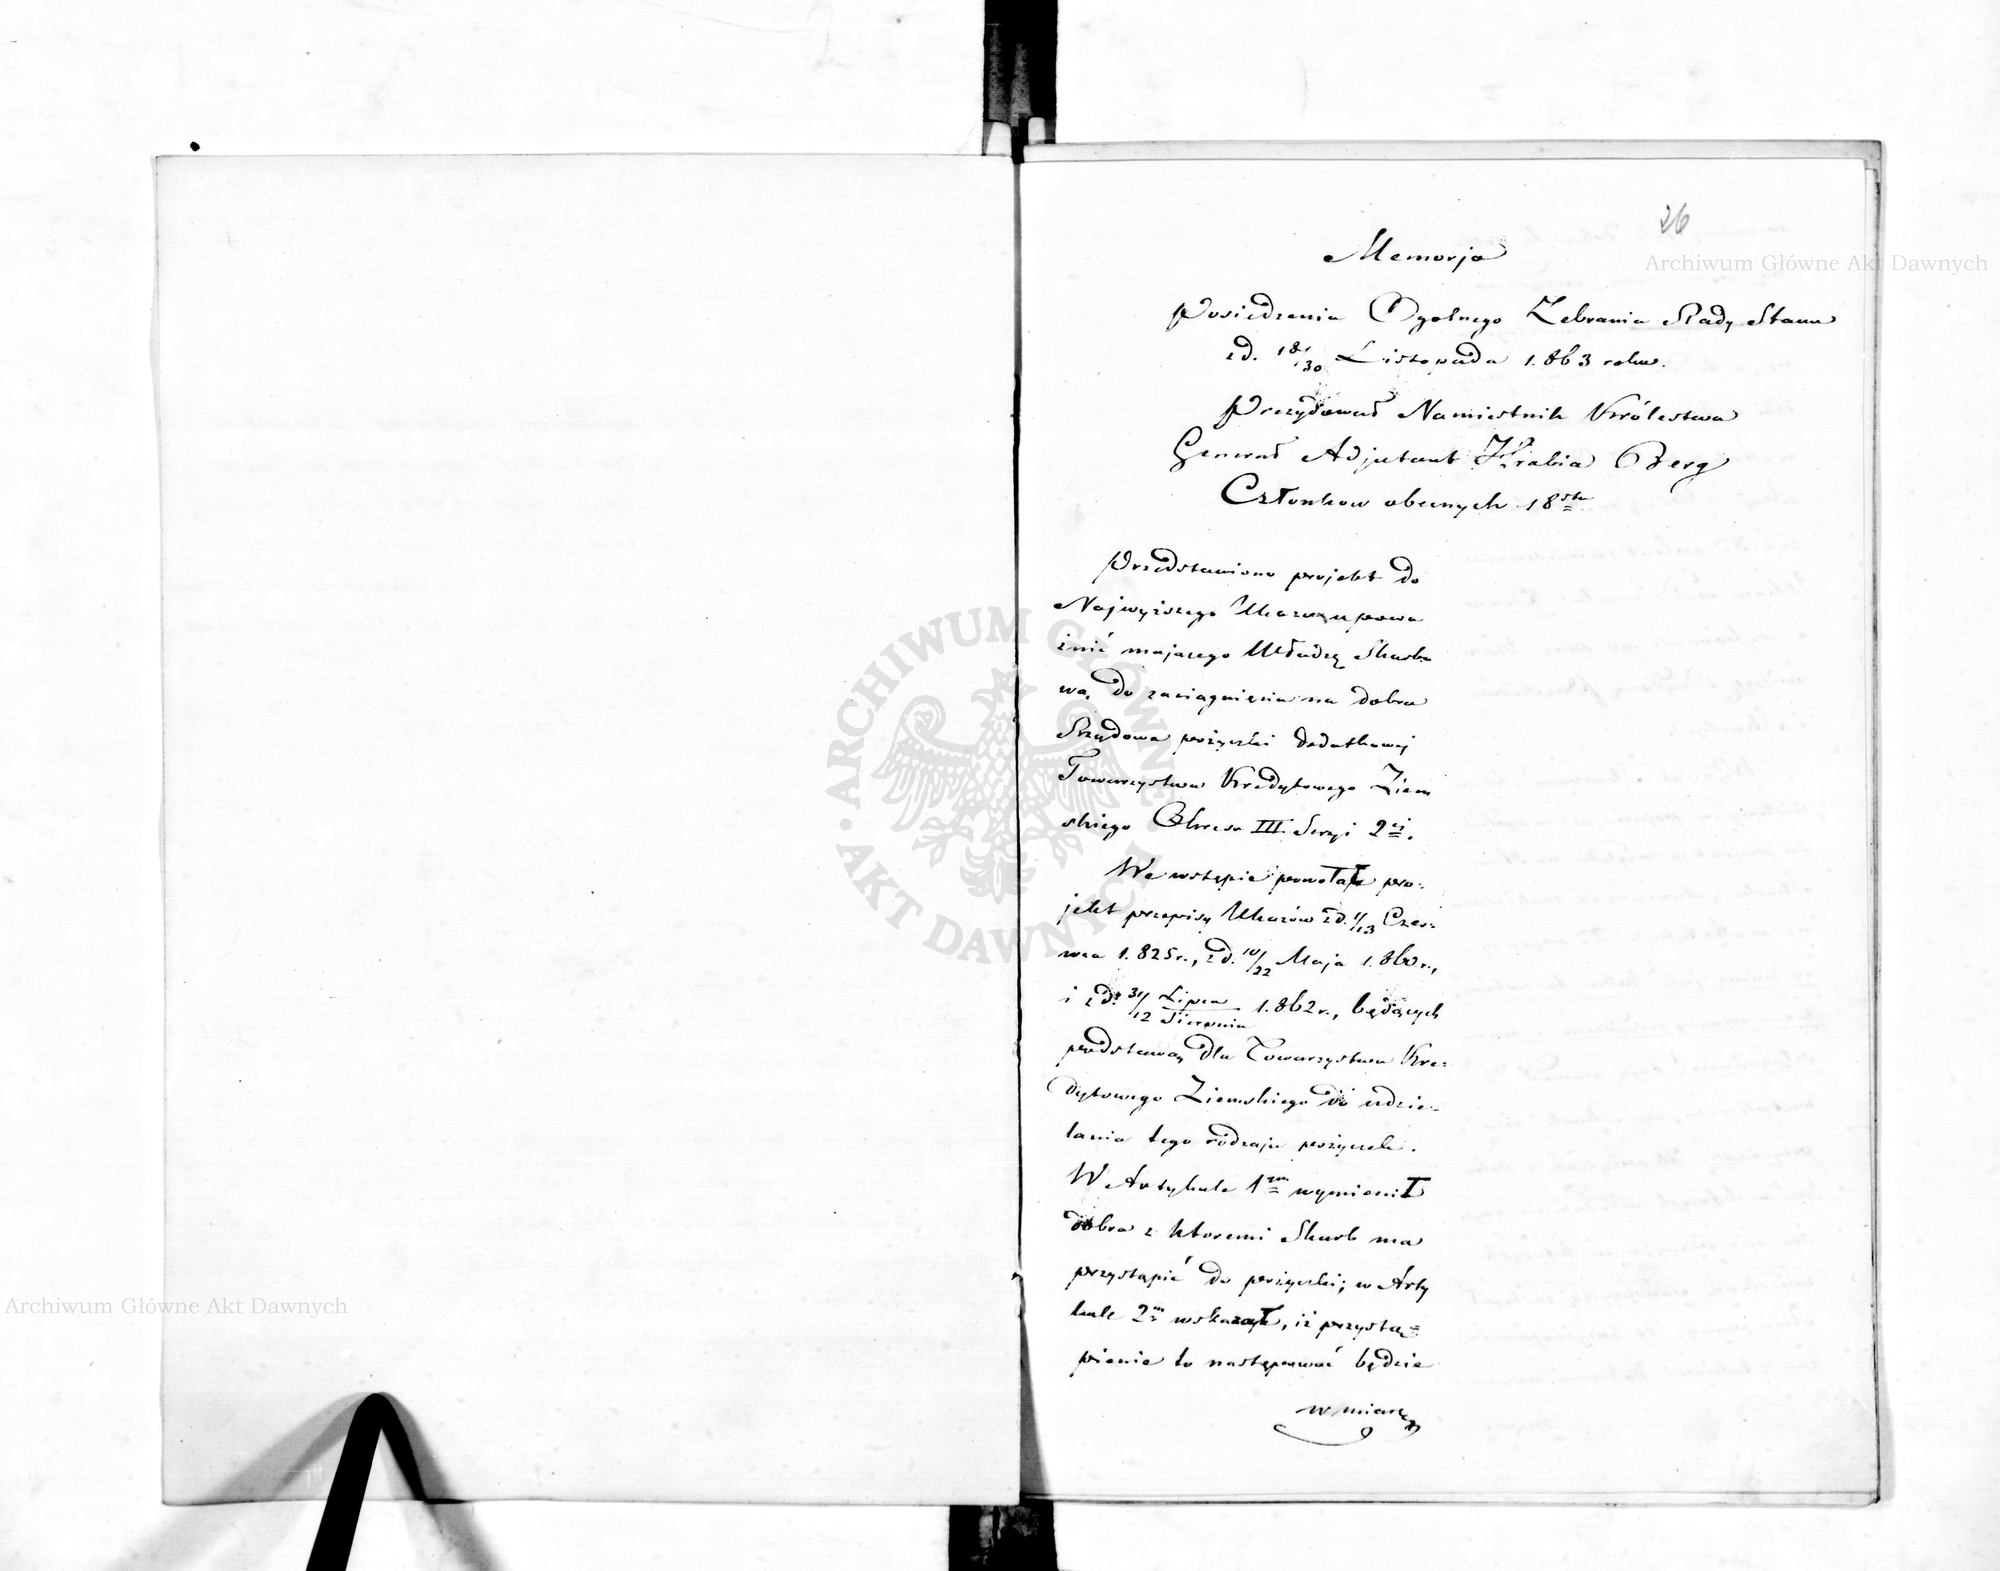 26
Memorja
Posiedzenia Ogolnego Zebrania Rady Stanu
z d. 18/30 Listopada 1.863 roku.
Prezydował Namiestnik Królestwa
Generał Adjutant Hrabia Berg
Członkow obecnych 18stu
Przedstawiono projekt do
Najwyższego Ukazu upowa
żnić mającego Władzę Skarbo
wą, do zaciągnięcia na dobra
Rządowe pożyczki dodatkowej
Towarzystwa Kredytowego Ziem
skiego Okresu III. Seryi 2ej.
We wstępie powołał pro-
jekt przepisy Ukazów z d. 1/13 Czer-
wca 1.825 r., z d. 10/22 Maja 1.860 r.,
i z d. 31/12 Lipca/Sierpnia 1.862 r., będących
podstawą dla Towarzystwa Kre-
dytowego Ziemskiego do udzie-
lania tego rodzaju pożyczek.
W Artykule 1ym wymienił
dobra z ktoremi Skarb ma
przystąpić do pożyczki; w Arty
kule 2m wskazał, iż przystą=
pienie to następować będzie
w miarę
Archiwum Główne Akt Dawnych
ARCHIWUM GŁÓWNE AKT DAWNYCH
Archiwum Główne Akt Dawnych